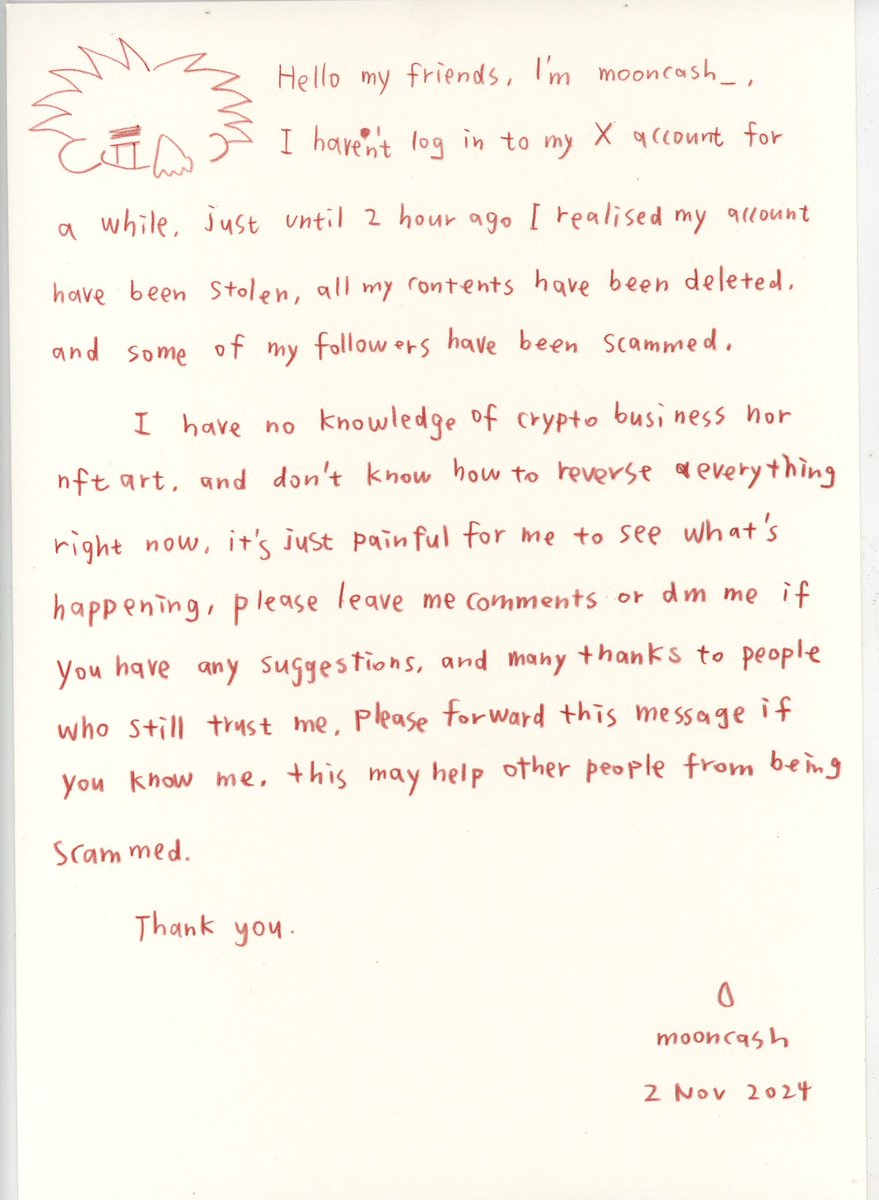 Hello my friends, I'm mooncash_,
I haven't log in to my X account for
a while, just until 2 hour ago I realised my account
have been stolen, all my contents have been deleted.
and some of my followers have been scammed.
I have no knowledge of crypto business nor
nft art, and don't know how to reverse everything
right now, it's just painful for me to see what's
happening, please leave me comments or dm me if
you have any suggestions, and many thanks to people
who still trust me, Please forward this message if
you know me. this may help other people from being
scammed.
Thank you.
mooncash
2 Nov 2024